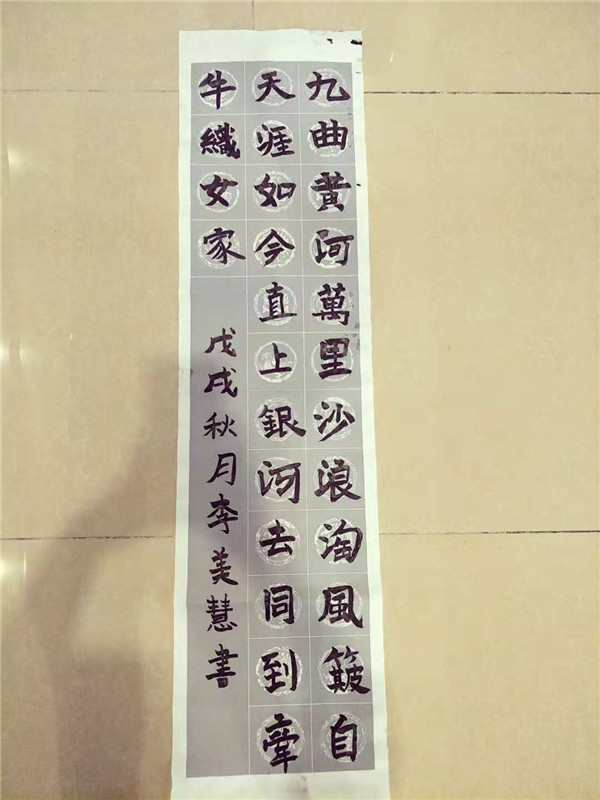 九曲黄河萬里沙浪淘風簸自
天涯如今直上銀河去同到牽
牛織女家
戊戌秋月李美慧書